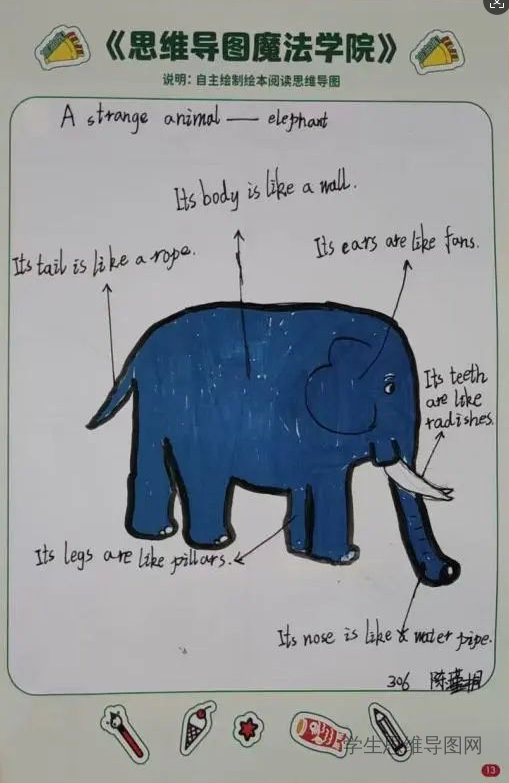 《思维导图魔法学院》
说明：自主绘制绘本阅读思维导图
A strange animal — elephant
Its body is like a wall.
Its ears are like fans.
Its tail is like a rope.
Its teeth
are like
radishes.
Its legs are like pillars.
Its nose is like a water pipe.
306 陈
学生思维导图网
13